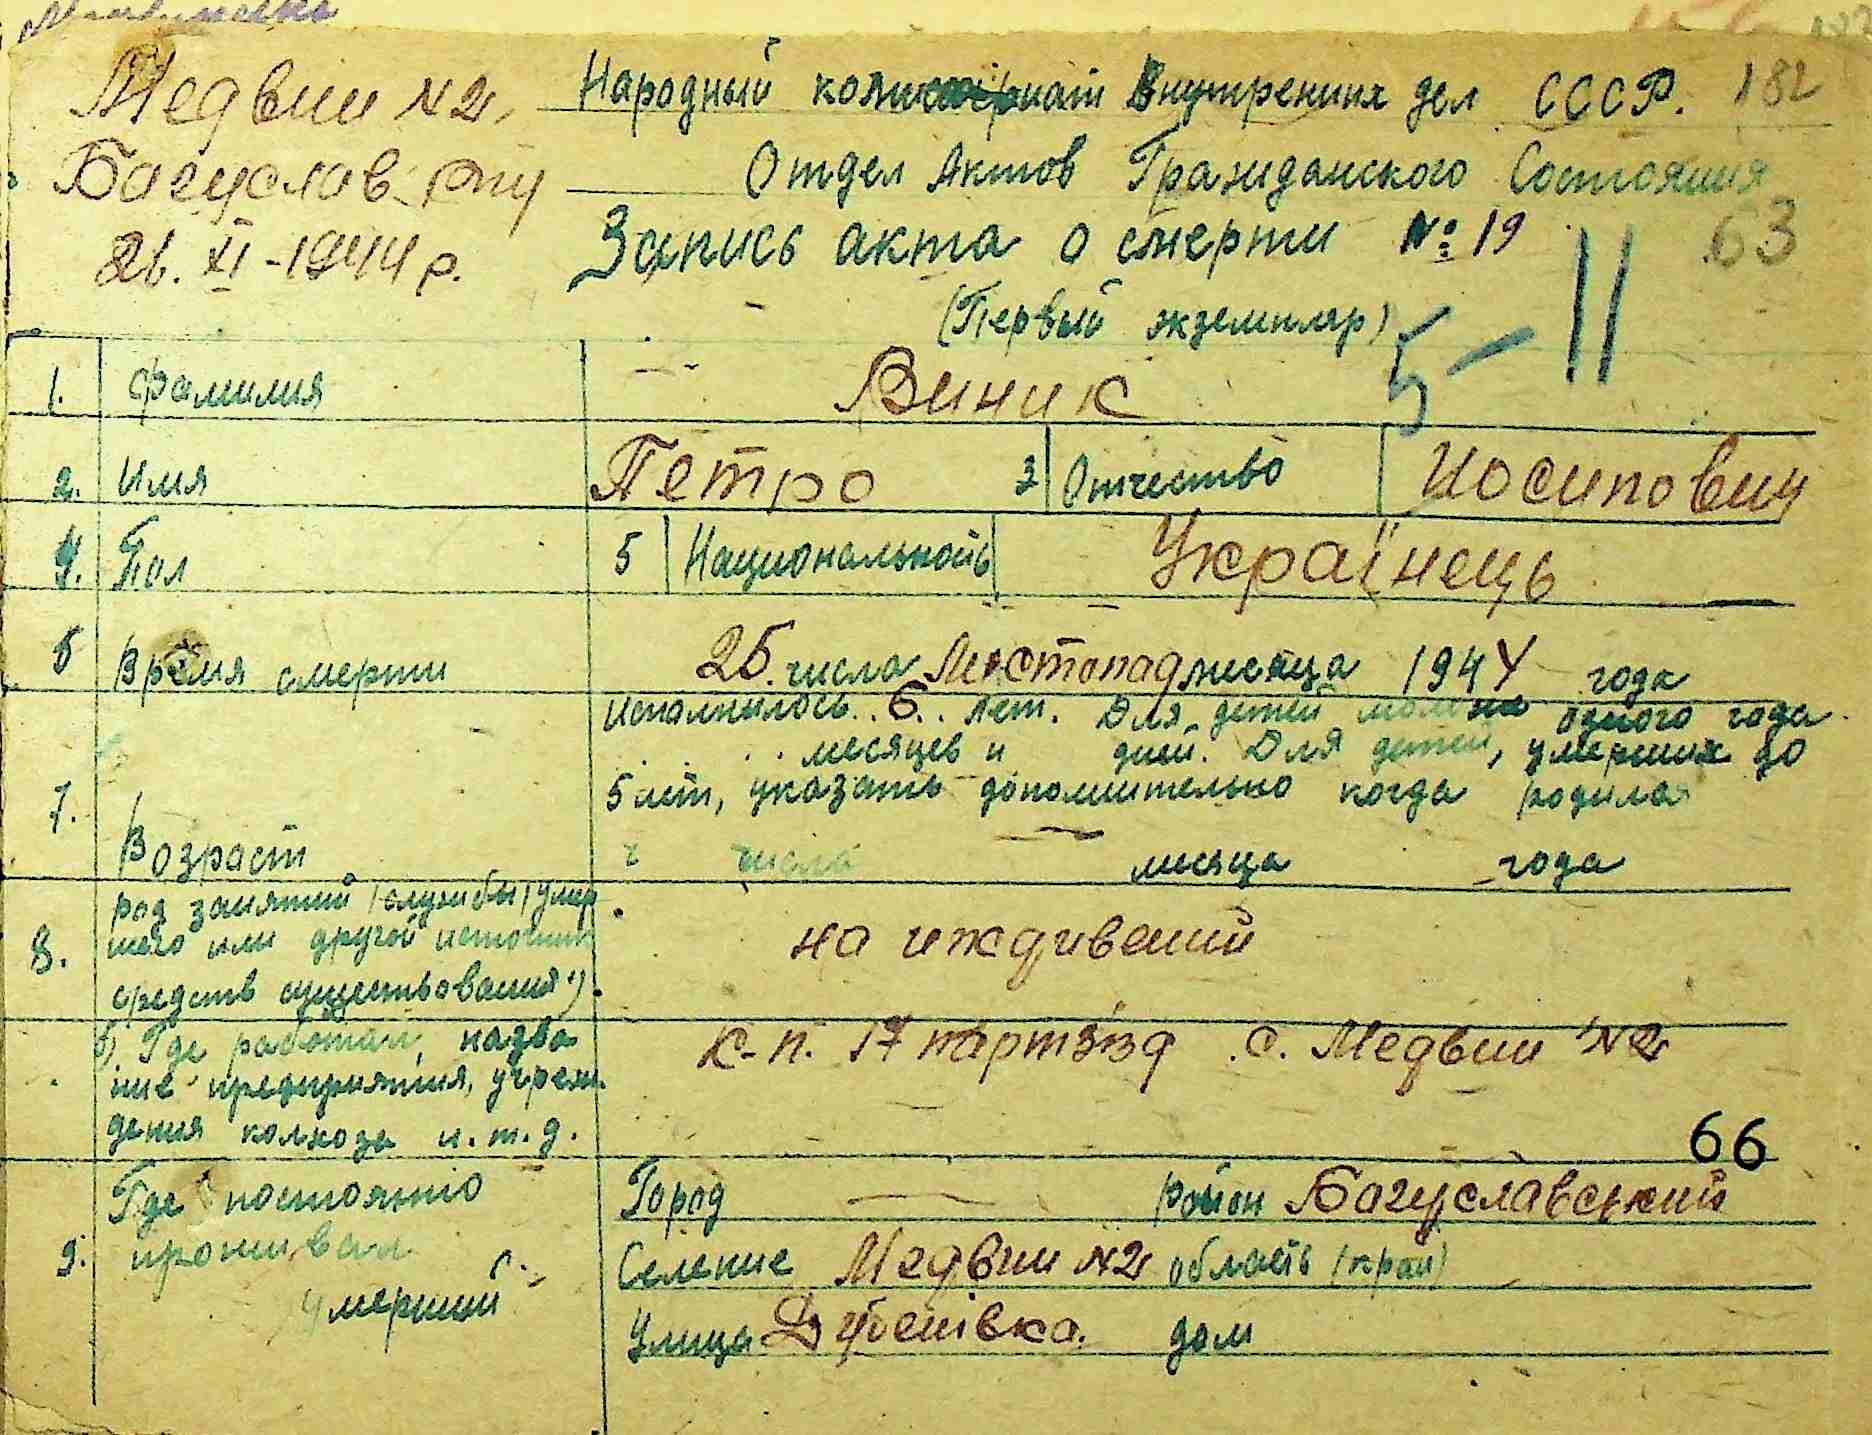 Медвин №2, Народный комиссариат Внутренних дел СССР. 182
Багуслав. р-ну Отдел Актов Гражданского Состояния
26. XI - 1944 р. Запись акта о смерти №19 63
(Первый экземпляр) 5 – II
1. Фамилия Виник
2. Имя Петро 3 Отчество Иосипович
4. Пол 5 Национальность Українець
6 Время смерти 25. числа Листопад месяца 1944 года
Исполнилось . . 6. . лет. Для детей моложе одного года
. . . месяцев и дней. Для детей, умерших до
5 лет, указать дополнительно когда родился
7. Возраст числа месяца года
род занятий (службы) умер
8. шего или другой источник на иждивений
средств существования·).
б). Где работал, назва к-п. 17 партз'їзд с. Медвин №2
ние предприятия, учреж.
дения колхоза и.т.д. 66
Где постоянно Город — район Багуславський
9. проживал Селение Медвин №2 область (край)
умерший Улица Дубенівка. дом